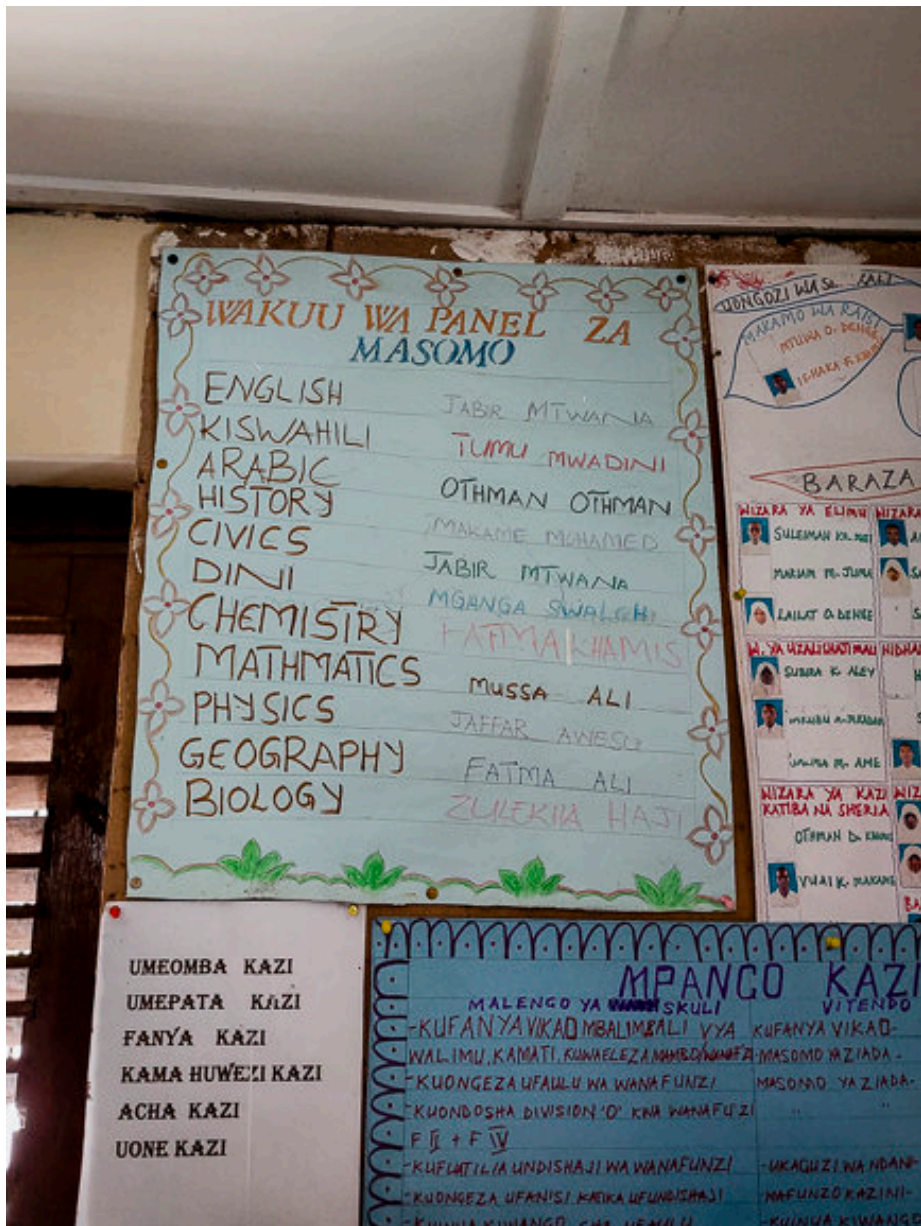 WAKUU WA PANEL ZA
MASOMO
ENGLISH JABIR MTWANA
KISWAHILI TUMU MWADINI
ARABIC OTHMAN OTHMAN
HISTORY MAKAME MOHAMED
CIVICS JABIR MTWANA
DINI MGANGA SWALEHI
CHEMISTRY FATMA KHAMIS
MATHMATICS MUSSA ALI
PHYSICS JAFFAR AWESU
GEOGRAPHY FATMA ALI
BIOLOGY ZULEKHA HAJI
UONGOZI WA
MAKAMO WA RAIS
MTUWA O. DENGE
BARAZA
WIZARA YA ELIMU WIZARA
SULEIMAN
MARIAM M. JUMA
LAILAT O. DENGE
SUBIRA K. ALEY
M. AME
WIZARA YA KAZI
KATIBA NA SHERIA
OTHMAN D.
VUAI K. MAKAME
UMEOMBA KAZI
UMEPATA KAZI
FANYA KAZI
KAMA HUWEZI KAZI
ACHA KAZI
UONE KAZI
MPANGO KAZI
MALENGO YA SKULI VITENDO
-KUFANYA VIKAO MBALIMBALI VYA KUFANYA VIKAO-
WALIMU, KAMATI, KUWAELEZA MASOMO YA ZIADA-
-KUONGEZA UFAULU WA WANAFUNZI MASOMO YA ZIADA-
-KUONDOSHA DIVISION 'O' KWA WANAFUZI " "
F II + F IV
-KUFUATILIA UNDISHAJI WA WANAFUNZI -UKAGUZI WA NDANI-
-KUONGEZA UFANISI KATIKA UFUNDISHAJI -MAFUNZO KAZINI-
-KUINUA KIWANGO CHA UFAULU -KUINUA KIWANGO